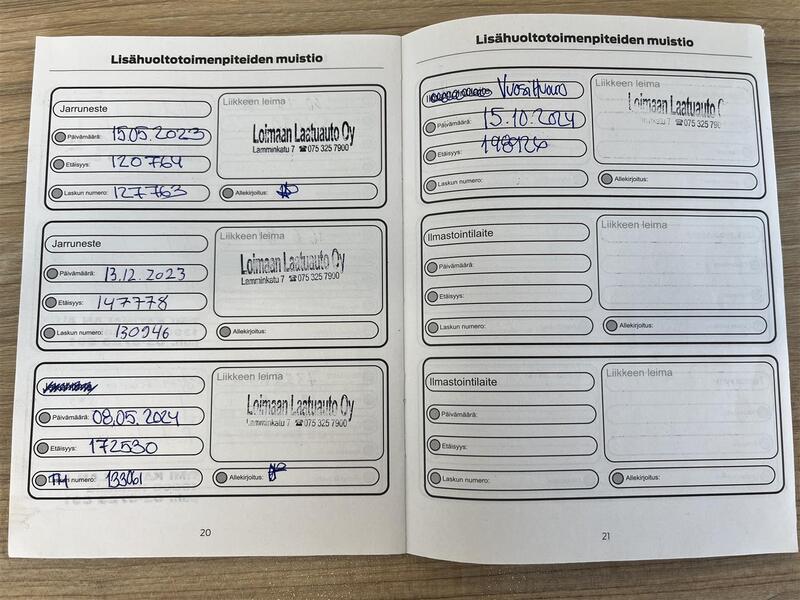 Lisähuoltotoimenpiteiden muistio
Jarruneste
Liikkeen leima
Päivämäärä: 15.05.2023
Loimaan Laatuauto Oy
Lamminkatu 7 ☎075 325 7900
Etäisyys: 120764
Laskun numero: 127763
Allekirjoitus:
Jarruneste
Liikkeen leima
Päivämäärä: 13.12.2023
Loimaan Laatuauto Oy
Lamminkatu 7 ☎075 325 7900
Etäisyys: 147778
Laskun numero: 130946
Allekirjoitus:
Liikkeen leima
Päivämäärä: 08.05.2024
Loimaan Laatuauto Oy
Lamminkatu 7 ☎075 325 7900
Etäisyys: 172530
Laskun numero: 133061
Allekirjoitus:
20
Lisähuoltotoimenpiteiden muistio
Vuosihuolto
Liikkeen leima
Päivämäärä: 15.10.2024
Loimaan Laatuauto
Lamminkatu 7 ☎075 325 790
Etäisyys: 198926
Laskun numero:
Allekirjoitus:
Ilmastointilaite
Liikkeen leima
Päivämäärä:
Etäisyys:
Laskun numero:
Allekirjoitus:
Ilmastointilaite
Liikkeen leima
Päivämäärä:
Etäisyys:
Laskun numero:
Allekirjoitus:
21